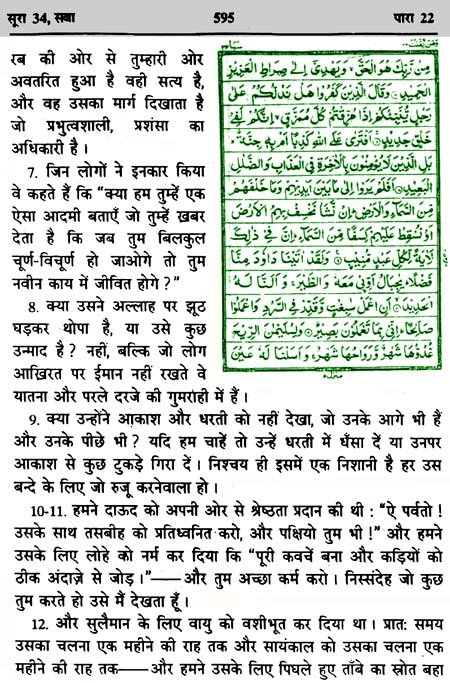 सूरा 34, सबा 595 पारा 22
रब की ओर से तुम्हारी ओर
अवतरित हुआ है वही सत्य है,
और वह उसका मार्ग दिखाता है
जो प्रभुत्वशाली, प्रशंसा का
अधिकारी है।
7. जिन लोगों ने इनकार किया
वे कहते हैं कि “क्या हम तुम्हें एक
ऐसा आदमी बताएँ जो तुम्हें ख़बर
देता है कि जब तुम बिलकुल
चूर्ण-विचूर्ण हो जाओगे तो तुम
नवीन काय में जीवित होगे?”
8. क्या उसने अल्लाह पर झूठ
घड़कर थोपा है, या उसे कुछ
उन्माद है? नहीं, बल्कि जो लोग
आख़िरत पर ईमान नहीं रखते वे
यातना और परले दरजे की गुमराही में हैं।
مِنْ رَّبِّكَ هُوَ الْحَقَّ ۙ وَيَهْدِيْٓ اِلٰى صِرَاطِ الْعَزِيْزِ
الْحَمِيْدِ ۞ وَقَالَ الَّذِيْنَ كَفَرُوْا هَلْ نَدُلُّكُمْ عَلٰى
رَجُلٍ يُّنَبِّئُكُمْ اِذَا مُزِّقْتُمْ كُلَّ مُمَزَّقٍ ۙ اِنَّكُمْ لَفِيْ
خَلْقٍ جَدِيْدٍ ۞ اَفْتَرٰى عَلَى اللّٰهِ كَذِبًا اَمْ بِهٖ جِنَّةٌ ؕ
بَلِ الَّذِيْنَ لَا يُؤْمِنُوْنَ بِالْاٰخِرَةِ فِي الْعَذَابِ وَالضَّلٰلِ
الْبَعِيْدِ ۞ اَفَلَمْ يَرَوْا اِلٰى مَا بَيْنَ اَيْدِيْهِمْ وَمَا خَلْفَهُمْ
مِّنَ السَّمَآءِ وَالْاَرْضِ ؕ اِنْ نَّشَاْ نَخْسِفْ بِهِمُ الْاَرْضَ
اَوْ نُسْقِطْ عَلَيْهِمْ كِسَفًا مِّنَ السَّمَآءِ ؕ اِنَّ فِيْ ذٰلِكَ
لَاٰيَةً لِّكُلِّ عَبْدٍ مُّنِيْبٍ ۞ وَلَقَدْ اٰتَيْنَا دَاوٗدَ مِنَّا
فَضْلًا ؕ يٰجِبَالُ اَوِّبِيْ مَعَهٗ وَالطَّيْرَ ۚ وَاَلَنَّا لَهُ
الْحَدِيْدَ ۞ اَنِ اعْمَلْ سٰبِغٰتٍ وَّقَدِّرْ فِي السَّرْدِ وَاعْمَلُوْا
صَالِحًا ؕ اِنِّيْ بِمَا تَعْمَلُوْنَ بَصِيْرٌ ۞ وَلِسُلَيْمٰنَ الرِّيْحَ
غُدُوُّهَا شَهْرٌ وَّرَوَاحُهَا شَهْرٌ ۚ وَاَسَلْنَا لَهٗ عَيْنَ
9. क्या उन्होंने आकाश और धरती को नहीं देखा, जो उनके आगे भी हैं
और उनके पीछे भी? यदि हम चाहें तो उन्हें धरती में धँसा दें या उनपर
आकाश से कुछ टुकड़े गिरा दें। निश्चय ही इसमें एक निशानी है हर उस
बन्दे के लिए जो रुजू करनेवाला हो।
10-11. हमने दाऊद को अपनी ओर से श्रेष्ठता प्रदान की थी : “ऐ पर्वतो!
उसके साथ तसबीह को प्रतिध्वनित करो, और पक्षियो तुम भी!” और हमने
उसके लिए लोहे को नर्म कर दिया कि “पूरी कवचें बना और कड़ियों को
ठीक अंदाज़े से जोड़।”——और तुम अच्छा कर्म करो। निस्संदेह जो कुछ
तुम करते हो उसे मैं देखता हूँ।
12. और सुलैमान के लिए वायु को वशीभूत कर दिया था। प्रात: समय
उसका चलना एक महीने की राह तक और सायंकाल को उसका चलना एक
महीने की राह तक——और हमने उसके लिए पिघले हुए ताँबे का स्रोत बहा